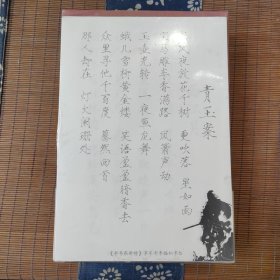 青玉案
东风夜放花千树 更吹落 星如雨
宝马雕车香满路 凤箫声动
玉壶光转 一夜鱼龙舞
蛾儿雪柳黄金缕 笑语盈盈暗香去
众里寻他千百度 蓦然回首
那人却在 灯火阑珊处
《辛弃疾新传》